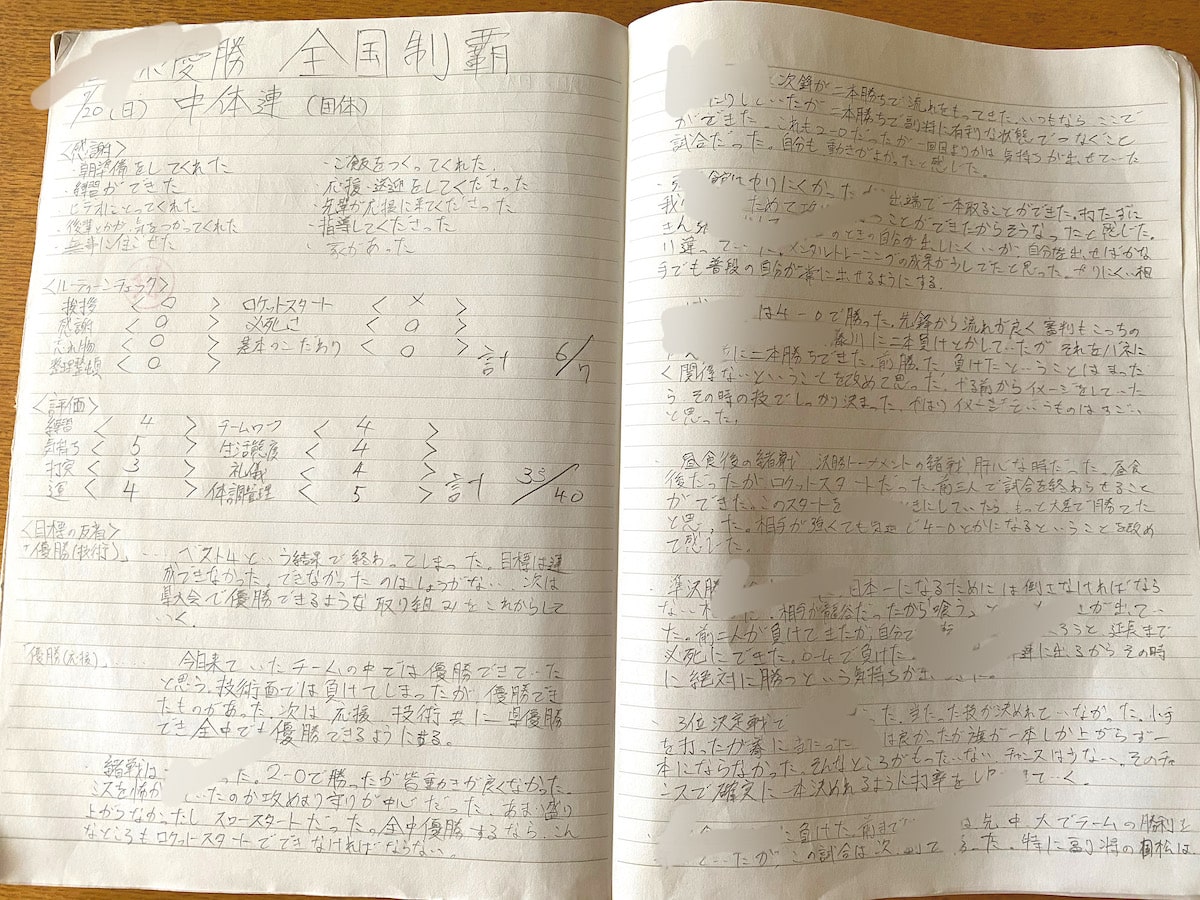 優勝 全国制覇
7/20(日) 中体連(団体)
<感謝>
・朝準備をしてくれた
・練習ができた
・ビデオにとってくれた
・後輩とかが気をつかってくれた
・無事に任せた
・ご飯をつくってくれた。
・応援・送迎をしてくださった
・先輩が応援に来てくださった
・指導してくださった
・家があった
<ルーティーンチェック>
挨拶 < ○ > ロケットスタート < × >
感謝 < ○ > 必死さ < ○ >
忘れ物 < ○ > 基本のこだわり < ○ > 計 6/7
整理整頓 < ○ >
<評価>
練習 < 4 > チームワーク < 4 >
気持ち < 5 > 生活態度 < 4 >
打突 < 3 > 礼儀 < 4 > 計 33/40
運 < 4 > 体調管理 < 5 >
<目標の反省>
「優勝(技術)」 ベスト4という結果で終わってしまった。目標は達
成できなかった。できなかったのはしょうがない 次は
県大会で優勝できるような取り組みをこれからして
いく。
「優勝(応援)」 今日来ていたチームの中では優勝できていた
と思う。技術面では負けてしまったが 優勝でき
たものがあった 次は 応援 技術 共に 県優勝
でき 全中でも優勝できるようにする。
・緒戦は った。2-0で勝ったが皆動きが良くなかった。
いたのか攻めより守りが中心だった。あまり盛り
上がらなかったし スロースタートだった。全中優勝するなら、こん
なところもロケットスタートでできなければならない。
次鋒が二本勝ちで流れをもってきた。いつもなら ここで
していたが 二本勝ちで 有利な状態でつなぐこと
ができた。これも2-0だったが一回目よりかは気持ちが出せていた
試合だった。自分も動きがよかったと感じた。
やりにくかった 出端で一本取ることができた。打たずに
ためて つことができたからそうなったと感じた。
のときの自分が出しにくいが 自分を出せばかな
り違って メンタルトレーニングの成果が でたと思った。やりにくい相
手でも普段の自分が常に出せるようにする。
は4-0で勝った。先鋒から流れが良く審判もこっちの
に二本負けとかしていたが それをバネに
に二本勝ちできた。前勝った 負けたということはまった
く関係ないということを改めて思った。やる前からイメージをしていた
ら その時の技でしっかり決まった。やはりイメージというものはすごい
と思った。
・昼食後の緒戦 決勝トーナメントの緒戦 肝心な時だった。昼食
後だったがロケットスタートだった。前三人で試合を終わらせること
ができた。このスタートを きにしていたら もっと大差で勝てた
と思った。相手が強くても で4-0とかになるということを改め
て感じた。
・準決勝 日本一になるためには倒さなければなら
ない 相手が龍谷だったから"喰う" が出てい
た。前二人が負けてきたが、自分で ろうと 延長まで
必死にできた。0-4で負けた。 に出るからその時
に絶対に勝つという気持ちが
・3位決定戦で った。当たった技が決めれていなかった。小手
を打ったが に当たった は良かったが旗が一本しか上がらず一
本にならなかった。そんなところがもったいない。チャンスはもうない。そのチャ
ンスで確実に一本決めれるように打率を ていく。
に負けた。前まで は 先 中 大でチームの勝利を
いたが この試合は次 った。特に副将の は